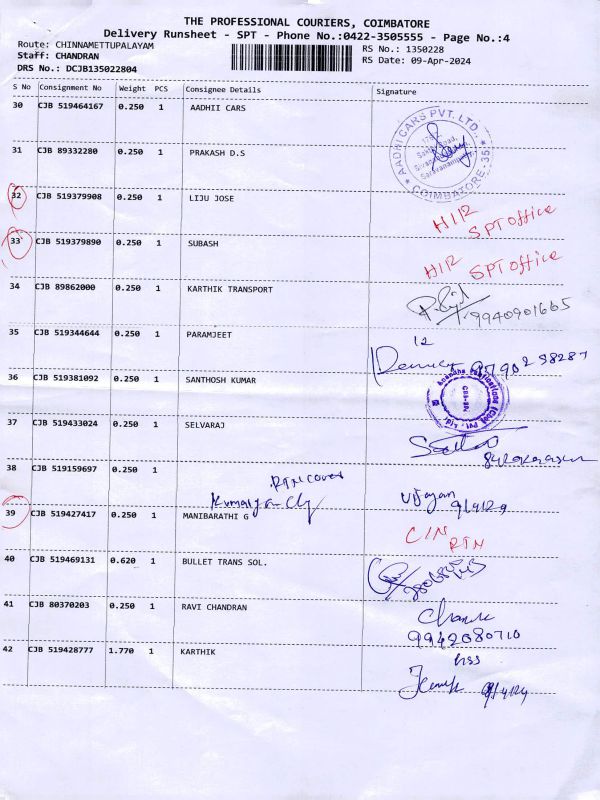 THE PROFESSIONAL COURIERS, COIMBATORE
Delivery Runsheet - SPT - Phone No.:0422-3505555 - Page No.:4
Route: CHINNAMETTUPALAYAM RS No.: 1350228
Staff: CHANDRAN RS Date: 09-Apr-2024
DRS No.: DCJB135022804
S No Consignment No Weight PCS Consignee Details Signature
30 CJB 519464167 0.250 1 AADHII CARS
AADHI CARS PVT. LTD. COIMBATORE-35
31 CJB 89332280 0.250 1 PRAKASH D.S
32 CJB 519379908 0.250 1 LIJU JOSE
HIR SPT office
33 CJB 519379890 0.250 1 SUBASH
HIR SPT office
34 CJB 89862000 0.250 1 KARTHIK TRANSPORT
9940901665
35 CJB 519344644 0.250 1 PARAMJEET
12
36 CJB 519381092 0.250 1 SANTHOSH KUMAR
37 CJB 519433024 0.250 1 SELVARAJ
38 CJB 519159697 0.250 1
RTN cover
Vijayan 9/4/24
39 CJB 519427417 0.250 1 MANIBARATHI G
C/N RTN
40 CJB 519469131 0.620 1 BULLET TRANS SOL.
41 CJB 80370203 0.250 1 RAVI CHANDRAN
9942080710
42 CJB 519428777 1.770 1 KARTHIK
9/4/24